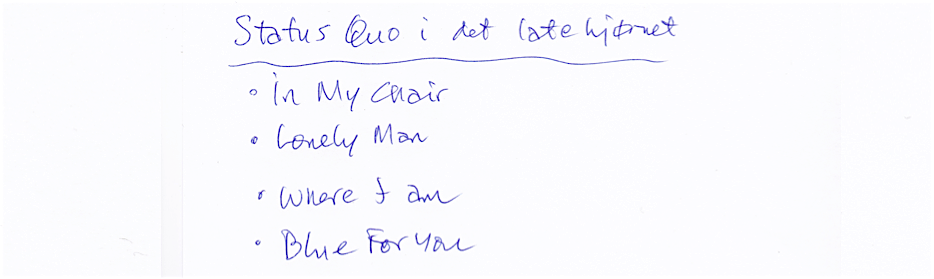 Status Quo i det late hjørnet
• In My Chair
• Lonely Man
• Where I am
• Blue For You